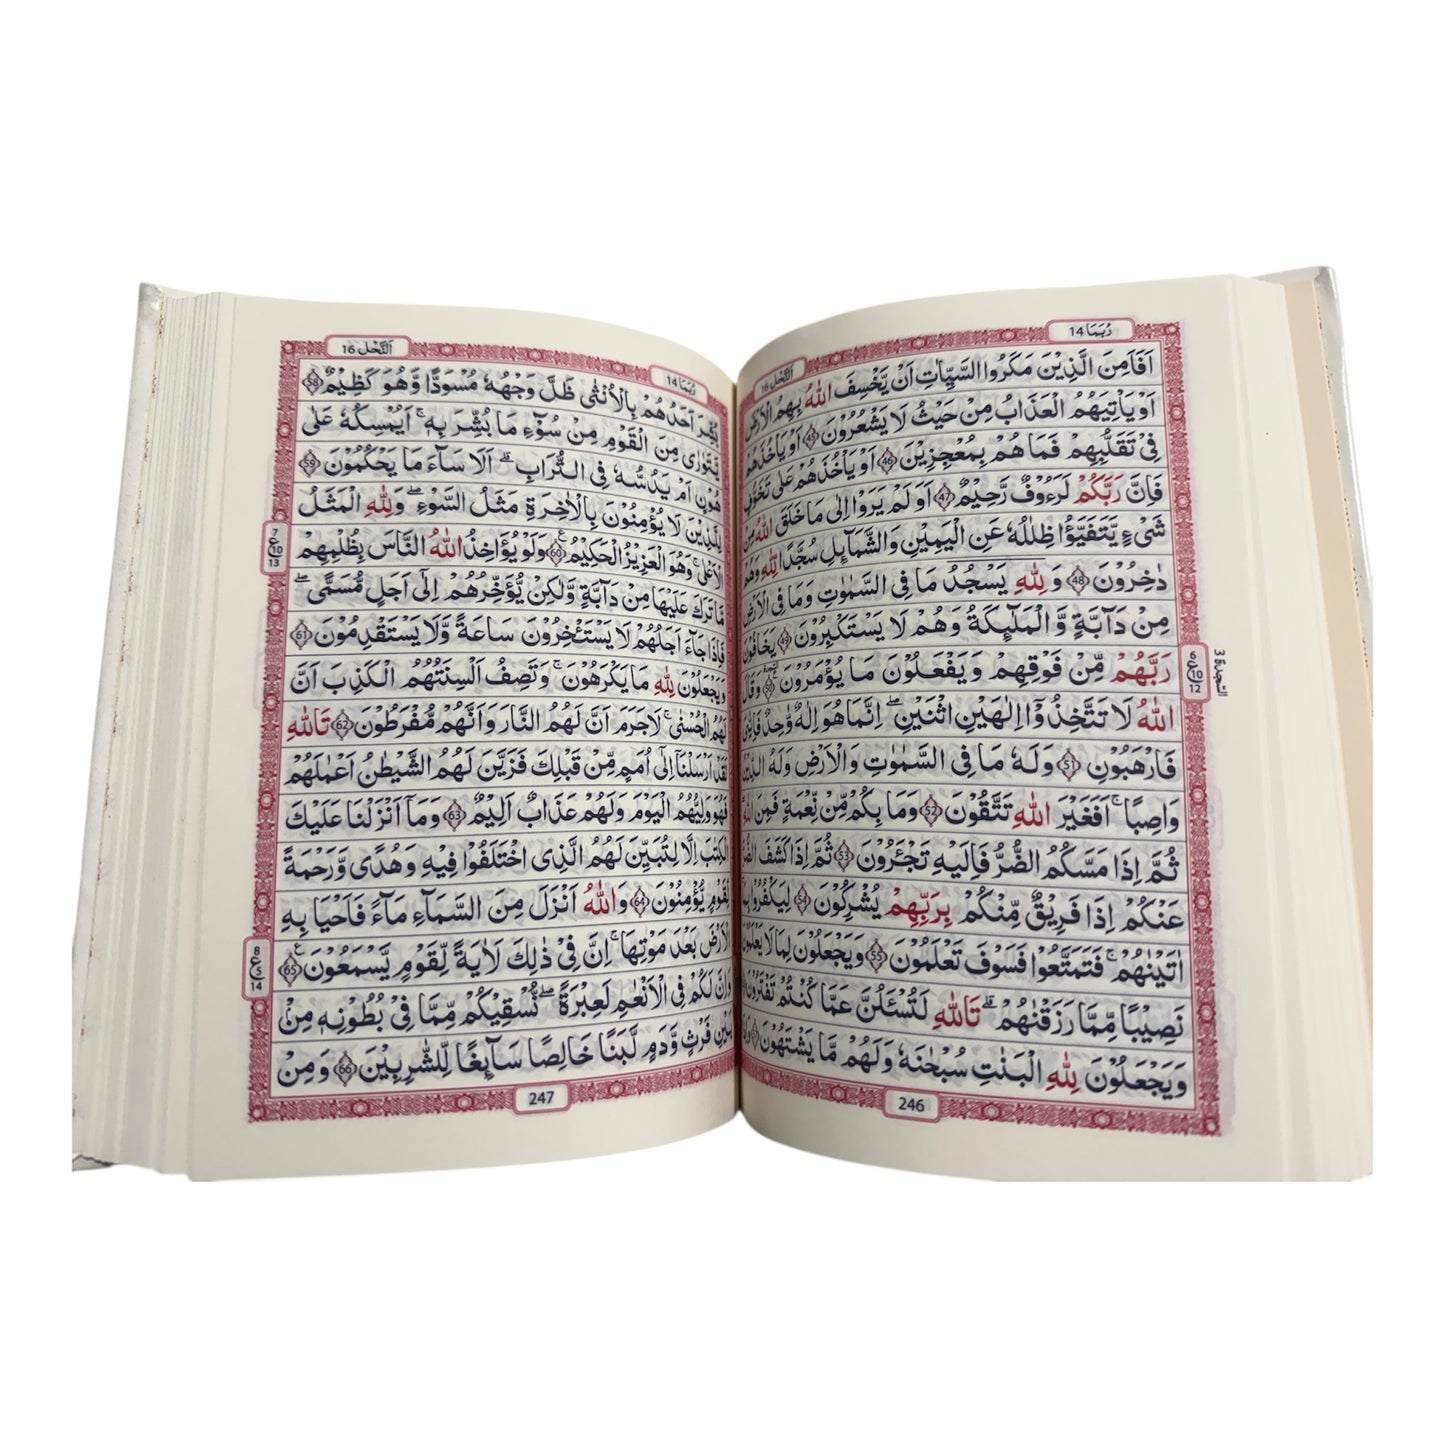 رُبَمَا 14
اَلنَّحْل 16
اَفَاَمِنَ الَّذِيْنَ مَكَرُوا السَّيِّاٰتِ اَنْ يَّخْسِفَ اللّٰهُ بِهِمُ الْاَرْضَ
اَوْ يَاْتِيَهُمُ الْعَذَابُ مِنْ حَيْثُ لَا يَشْعُرُوْنَ 45 اَوْ يَاْخُذَهُمْ
فِيْ تَقَلُّبِهِمْ فَمَا هُمْ بِمُعْجِزِيْنَ 46 اَوْ يَاْخُذَهُمْ عَلٰى تَخَوُّفٍ
فَاِنَّ رَبَّكُمْ لَرَءُوْفٌ رَّحِيْمٌ 47 اَوَ لَمْ يَرَوْا اِلٰى مَا خَلَقَ اللّٰهُ مِنْ
شَيْءٍ يَّتَفَيَّؤُا ظِلٰلُهٗ عَنِ الْيَمِيْنِ وَالشَّمَآئِلِ سُجَّدًا لِّلّٰهِ وَهُمْ
دٰخِرُوْنَ 48 وَ لِلّٰهِ يَسْجُدُ مَا فِي السَّمٰوٰتِ وَمَا فِي الْاَرْضِ
مِنْ دَآبَّةٍ وَّ الْمَلٰٓئِكَةُ وَهُمْ لَا يَسْتَكْبِرُوْنَ 49 يَخَافُوْنَ
رَبَّهُمْ مِّنْ فَوْقِهِمْ وَيَفْعَلُوْنَ مَا يُؤْمَرُوْنَ 50 وَقَالَ
اللّٰهُ لَا تَتَّخِذُوْٓا اِلٰهَيْنِ اثْنَيْنِ ۚ اِنَّمَا هُوَ اِلٰهٌ وَّاحِدٌ فَاِيَّايَ
فَارْهَبُوْنِ 51 وَلَهٗ مَا فِي السَّمٰوٰتِ وَالْاَرْضِ وَلَهُ الدِّيْنُ
وَاصِبًا ۚ اَفَغَيْرَ اللّٰهِ تَتَّقُوْنَ 52 وَمَا بِكُمْ مِّنْ نِّعْمَةٍ فَمِنَ اللّٰهِ
ثُمَّ اِذَا مَسَّكُمُ الضُّرُّ فَاِلَيْهِ تَجْـَٔرُوْنَ 53 ثُمَّ اِذَا كَشَفَ الضُّرَّ
عَنْكُمْ اِذَا فَرِيْقٌ مِّنْكُمْ بِرَبِّهِمْ يُشْرِكُوْنَ 54 لِيَكْفُرُوْا بِمَآ
اٰتَيْنٰهُمْ ۚ فَتَمَتَّعُوْا فَسَوْفَ تَعْلَمُوْنَ 55 وَيَجْعَلُوْنَ لِمَا لَا يَعْلَمُوْنَ
نَصِيْبًا مِّمَّا رَزَقْنٰهُمْ ۗ تَاللّٰهِ لَتُسْـَٔلُنَّ عَمَّا كُنْتُمْ تَفْتَرُوْنَ
وَيَجْعَلُوْنَ لِلّٰهِ الْبَنٰتِ سُبْحٰنَهٗ وَلَهُمْ مَّا يَشْتَهُوْنَ
السجدة 3
6 ع 10 12
246
رُبَمَا 14
اَلنَّحْل 16
بُشِّرَ اَحَدُهُمْ بِالْاُنْثٰى ظَلَّ وَجْهُهٗ مُسْوَدًّا وَّهُوَ كَظِيْمٌ 58
يَتَوَارٰى مِنَ الْقَوْمِ مِنْ سُوْٓءِ مَا بُشِّرَ بِهٖ ۗ اَيُمْسِكُهٗ عَلٰى
هُوْنٍ اَمْ يَدُسُّهٗ فِي التُّرَابِ ۗ اَلَا سَآءَ مَا يَحْكُمُوْنَ 59
لِلَّذِيْنَ لَا يُؤْمِنُوْنَ بِالْاٰخِرَةِ مَثَلُ السَّوْءِ ۚ وَلِلّٰهِ الْمَثَلُ
الْاَعْلٰى ۗ وَهُوَ الْعَزِيْزُ الْحَكِيْمُ 60 وَلَوْ يُؤَاخِذُ اللّٰهُ النَّاسَ بِظُلْمِهِمْ
مَّا تَرَكَ عَلَيْهَا مِنْ دَآبَّةٍ وَّلٰكِنْ يُّؤَخِّرُهُمْ اِلٰٓى اَجَلٍ مُّسَمًّى ۚ
فَاِذَا جَآءَ اَجَلُهُمْ لَا يَسْتَـْٔخِرُوْنَ سَاعَةً وَّلَا يَسْتَقْدِمُوْنَ 61
وَيَجْعَلُوْنَ لِلّٰهِ مَا يَكْرَهُوْنَ ۚ وَتَصِفُ اَلْسِنَتُهُمُ الْكَذِبَ اَنَّ
لَهُمُ الْحُسْنٰى ۗ لَاجَرَمَ اَنَّ لَهُمُ النَّارَ وَاَنَّهُمْ مُّفْرَطُوْنَ 62 تَاللّٰهِ
لَقَدْ اَرْسَلْنَآ اِلٰٓى اُمَمٍ مِّنْ قَبْلِكَ فَزَيَّنَ لَهُمُ الشَّيْطٰنُ اَعْمَالَهُمْ
فَهُوَ وَلِيُّهُمُ الْيَوْمَ وَلَهُمْ عَذَابٌ اَلِيْمٌ 63 وَمَآ اَنْزَلْنَا عَلَيْكَ
الْكِتٰبَ اِلَّا لِتُبَيِّنَ لَهُمُ الَّذِي اخْتَلَفُوْا فِيْهِ وَهُدًى وَّرَحْمَةً
لِّقَوْمٍ يُّؤْمِنُوْنَ 64 وَاللّٰهُ اَنْزَلَ مِنَ السَّمَآءِ مَآءً فَاَحْيَا بِهِ
الْاَرْضَ بَعْدَ مَوْتِهَا ۗ اِنَّ فِيْ ذٰلِكَ لَاٰيَةً لِّقَوْمٍ يَّسْمَعُوْنَ 65
وَاِنَّ لَكُمْ فِي الْاَنْعَامِ لَعِبْرَةً ۗ نُسْقِيْكُمْ مِّمَّا فِيْ بُطُوْنِهٖ مِنْۢ
بَيْنِ فَرْثٍ وَّدَمٍ لَّبَنًا خَالِصًا سَآئِغًا لِّلشّٰرِبِيْنَ 66 وَمِنْ
7 ع 10 13
8 ع 5 14
247